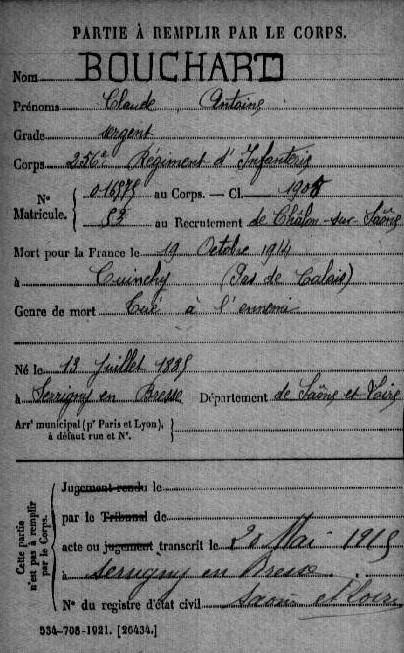 PARTIE À REMPLIR PAR LE CORPS.
Nom BOUCHARD
Prénoms Claude Antoine
Grade sergent
Corps 256e Régiment d'Infanterie
N° Matricule. { 016575 au Corps. — Cl. 1905
53 au Recrutement de Châlon-sur-Saône
Mort pour la France le 19 Octobre 1914
à Cuinchy (Pas de Calais)
Genre de mort Tué à l'ennemi
Né le 13 Juillet 1885
à Serrigny en Bresse Département de Saône et Loire
Arrt municipal (pr Paris et Lyon), à défaut rue et N°. }
Cette partie n'est pas à remplir par le Corps.
Jugement rendu le
par le Tribunal de
acte ou jugement transcrit le 20 Mai 1915
à Serrigny en Bresse
N° du registre d'état civil Saône et Loire
534-708-1921. [26434.]